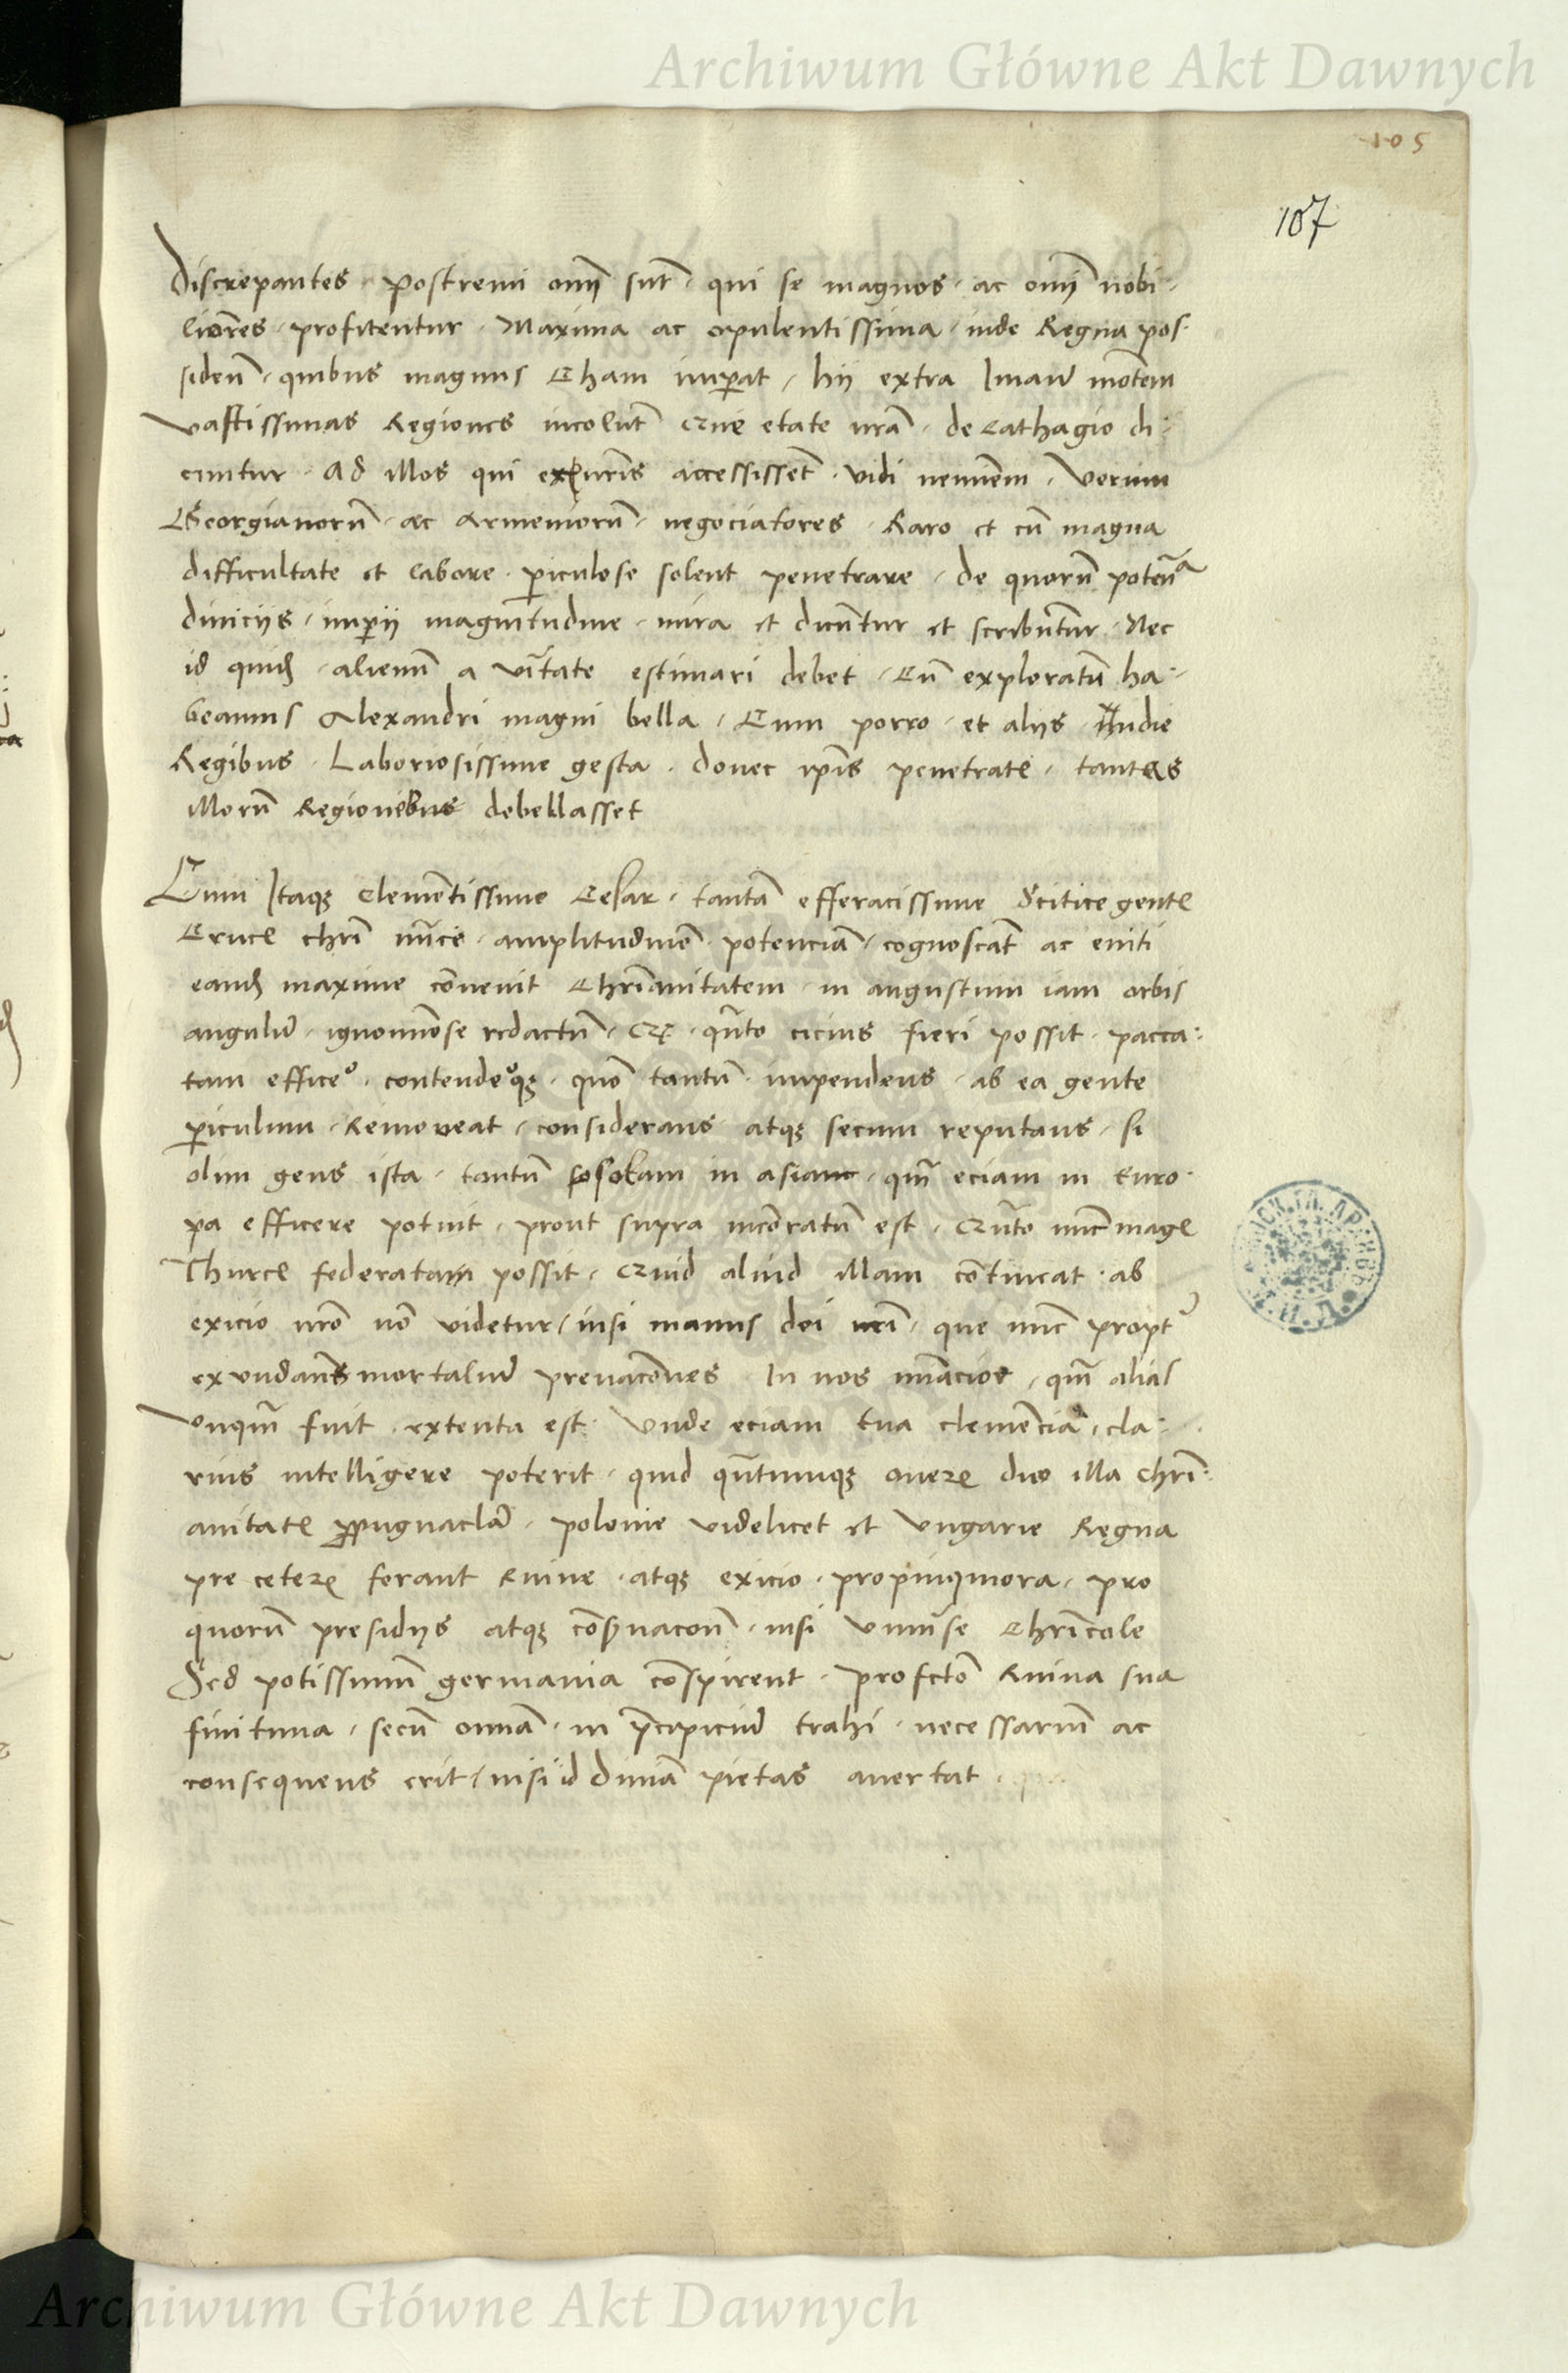 Archiwum Główne Akt Dawnych
105
107
Discrepantes · postremi omῑ sunt̄ · qui se magnos · ac omῑ nobi·
liores̄ · profitentur · Maxima ac opulentissima · inde Regna pos·
siden̄ · quibus magnus Cham imp̄at · hii extra Imaū mōtem
vastissimas Regiones incolūt Que etate nr̄a · de Cathagio di:
cuntur · Ad illos qui ex nr̄is accessissēt · vidi neminēm · Verum
Georgianorū · ac Armeniorū · negociatores · Raro et cū magna
difficultate et labore · p̄iculose solent penetrare · de quorū potēna
diviciis · imp̄ii magnitudine · mira et dicūntur et scribūntur · Nec
id quid̄ · alienū a vī̄tate estimari debet · Cū exploratū ha·
beamus Alexandri magni bella · Cum porro · et aliis Indie
Regibus · Laboriosissime gesta · donec ip̄is penetratꝭ · tantis
illorū Regionibus debellasset
Cum Itaqꝫ Clemētissime Cesar · tantā efferacissime Scitice gentꝭ
Crucꝭ chrī · amplitudinē · potenciā · cognoscat̄ ac eniti
eand̄ maxime cōvenit Chrīanitatem in angustum iam orbis
angulū · ignominōse redactū · qn̄to cicius fieri possit · pacca:
tam efficeᵒ · contendeᵒqꝫ · quō tantū · impendens · ab ea gente
p̄iculum · Removeat · considerans atqꝫ secum reputans · si
olim gens ista · tantū in asiam · qm̄ eciam in Euro·
pa efficere potuit · prout supra memōratū est · Qūnto nūc magꝭ
Thurcꝭ federatam possit · Quid aliud illam cōntineat · ab
exicio nrō nō videtur / nisi manus dei nrī · que nūc propt̉
exundan̄s mortaliū prevacōnes In nos mīnacior · qm̄ alias
vnqm̄ fuit · extenta est · Vnde eciam tua clemēncia · cla:
rius intelligere poterit · quid qn̄tumqꝫ onerꝭ duo illa chrī:
anitatꝭ p̄pugnaclā · polonie videlicet et Vngarie Regna
pre ceterꝭ ferant Ruine · atqꝫ exicio · propinquiora · pro
quorū presidiis atqꝫ cōs̄ervacōn̄ · nisi vniūse Chrīcole
Sed potissimū germania cōnspirent · profctō Ruina sua
finitima · secū omīa · in p̄cipiciū trahi · necessariū ac
consequens erit / nisi id divīa pietas avertat ·
Archiwum Główne Akt Dawnych